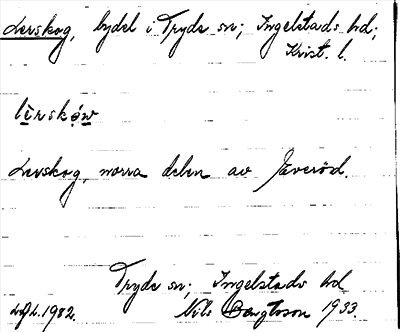 Lerskog, bydel i Tryde sn; Ingelstads hd;
Krist. l.
lērskǫw
Lerskog, norra delen av Everöd.
Tryde sn; Ingelstads hd
1982. Nils Bengtsson 1933.